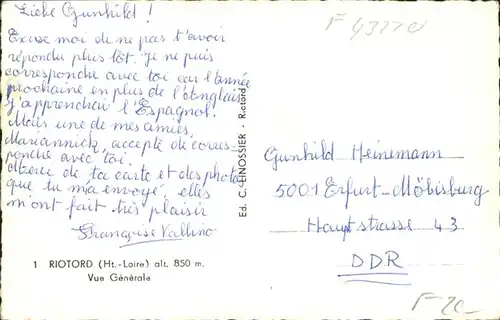 Liebe Gunhild !
Excuse moi de ne pas t'avoir
répondu plus tôt. Je ne puis
correspondre avec toi car l'année
prochaine en plus de l'Anglais
j'apprendrai l'Espagnol.
Mais une de mes amies,
Mariannick, accepte de corres-
pondre avec toi.
Merci de ta carte et des photos
que tu m'a envoyé, elles
m'ont fait très plaisir
Françoise Vallino
1 RIOTORD (Ht.-Loire) alt. 850 m.
Vue Générale
Ed. C. EINOSSIER - Riotord
F 43220
Gunhild Heinemann
5001 Erfurt-Möbisburg
Hauptstrasse 43
DDR
F 20-